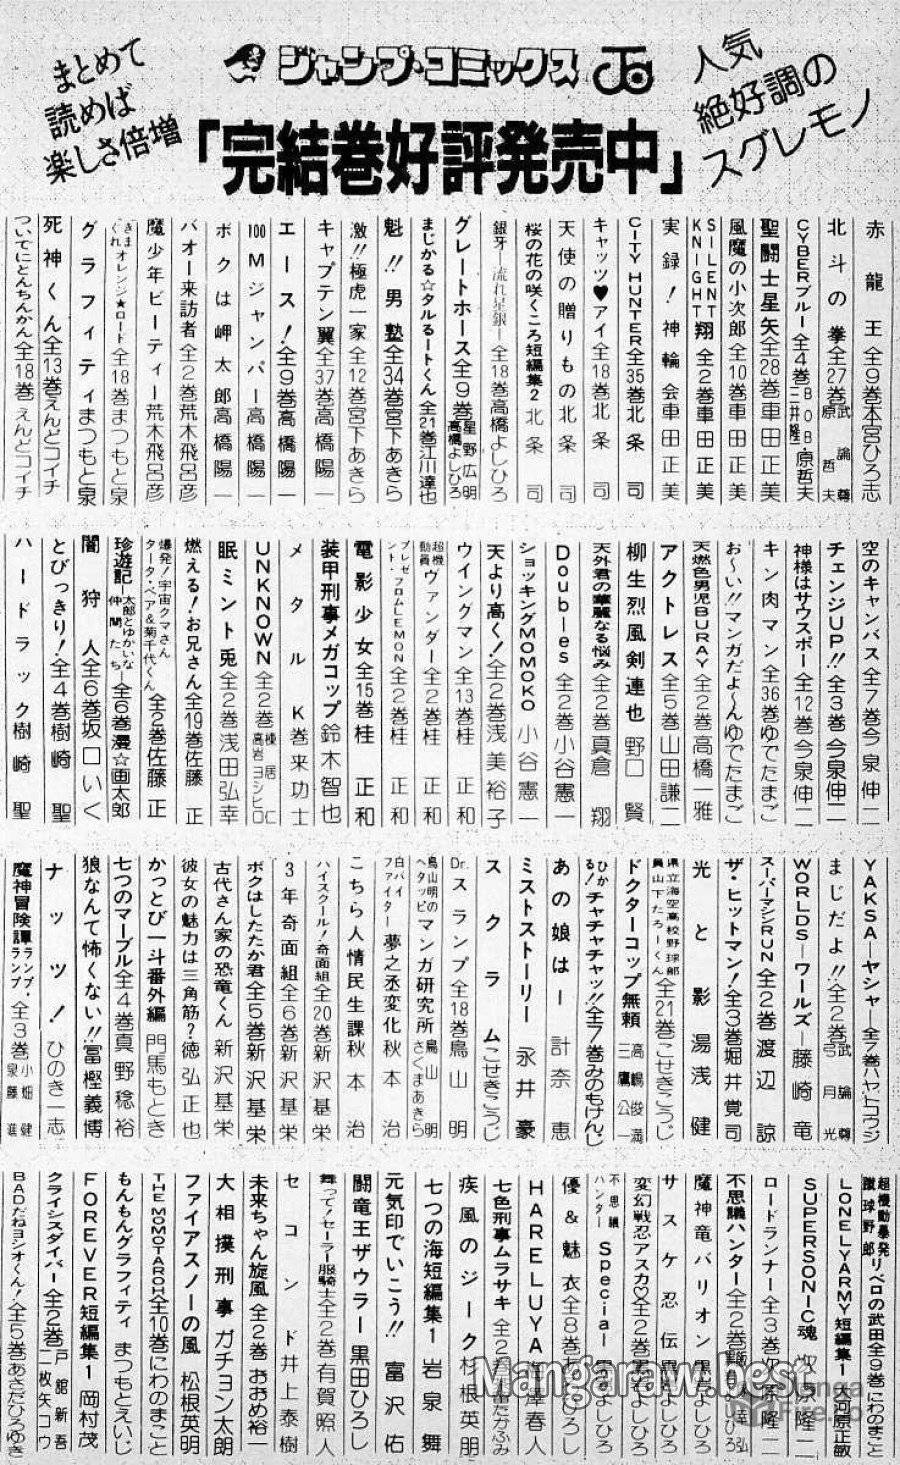 人気
絶好調の
スグレモノ
ジャンプ・コミックス
「完結巻好評発売中」
まとめて
読めば
楽しさ倍増
赤龍王 全9巻 本宮ひろ志
北斗の拳 全27巻 武論尊 原哲夫
CYBERブルー 全4巻 BOB・三井隆一 原哲夫
聖闘士星矢 全28巻 車田正美
風魔の小次郎 全10巻 車田正美
SILENT KNIGHT翔 全2巻 車田正美
実録!神輪会 車田正美
CITY HUNTER 全35巻 北条司
キャッツ♥アイ 全18巻 北条司
天使の贈りもの 北条司
桜の花の咲くころ 短編集2 北条司
銀牙―流れ星 銀― 全18巻 高橋よしひろ
グレートホース 全9巻 星野広明 高橋よしひろ
まじかる☆タルるートくん 全21巻 江川達也
魁!!男塾 全34巻 宮下あきら
激!!極虎一家 全12巻 宮下あきら
キャプテン翼 全37巻 高橋陽一
エース! 全9巻 高橋陽一
100Mジャンパー 高橋陽一
ボクは岬太郎 高橋陽一
バオー来訪者 全2巻 荒木飛呂彦
魔少年ビーティー 荒木飛呂彦
きまぐれオレンジ★ロード 全18巻 まつもと泉
グラフィティ まつもと泉
死神くん 全13巻 えんどコイチ
ついでにとんちんかん 全18巻 えんどコイチ
空のキャンバス 全7巻 今泉伸二
チェンジUP!! 全3巻 今泉伸二
神様はサウスポー 全12巻 今泉伸二
キン肉マン 全36巻 ゆでたまご
お〜い!!マンガだよ〜ん ゆでたまご
天燃色男児BURAY 全2巻 高橋一雅
アクトレス 全5巻 山田謙二
柳生烈風剣連也 野口賢
天外君の華麗なる悩み 全2巻 真倉翔
Doubles 全2巻 小谷憲一
ショッキングMOMOKO 小谷憲一
天より高く! 全2巻 浅美裕子
ウイングマン 全13巻 桂正和
超機動員ヴァンダー 全2巻 桂正和
プレゼント・フロムLEMON 全2巻 桂正和
電影少女 全15巻 桂正和
装甲刑事メガコップ 鈴木智也
メタルK 巻来功士
UNKNOWN 全2巻 棟居仁 高岩ヨシヒロ
眠兎 全2巻 浅田弘幸
燃える!お兄さん 全19巻 佐藤正
爆発!宇宙クマさん タータ・ベア&菊千代くん 全2巻 佐藤正
珍遊記―太郎とゆかいな仲間たち― 全6巻 漫☆画太郎
闇狩人 全6巻 坂口いく
とびっきり! 全4巻 樹崎聖
ハードラック 樹崎聖
YAKSA―ヤシャ― 全7巻 ハヤトコウジ
まじだよ!! 全2巻 武論尊 弓月光
WORLDS―ワールズ― 藤崎竜
スーパーマシンRUN 全2巻 渡辺諒
ザ・ヒットマン! 全3巻 堀井覚司
光と影 湯浅健
県立海空高校野球部員山下たろーくん 全21巻 こせきこうじ
ドクターコップ無頼 高嶋俊満 三鷹公一
ひかる!チャチャチャッ!! 全7巻 みのもけんじ
あの娘は― 計奈恵
ミストストーリー 永井豪
スクラム こせきこうじ
Dr.スランプ 全18巻 鳥山明
鳥山明のヘタッピマンガ研究所 鳥山明 さくまあきら
白バイファイター 夢之丞変化 秋本治
こちら人情民生課 秋本治
ハイスクール!奇面組 全20巻 新沢基栄
3年奇面組 全6巻 新沢基栄
ボクはしたたか君 全5巻 新沢基栄
古代さん家の恐竜くん 新沢基栄
彼女の魅力は三角筋? 徳弘正也
かっとび一斗番外編 門馬もとき
七つのマーブル 全4巻 真野稔裕
狼なんて怖くない!! 冨樫義博
ナッツ! ひのき一志
魔神冒険譚ランプ・ランプ 全3巻 小畑健 泉藤進
超機動暴発蹴球野郎 リベロの武田 全9巻 にわのまこと
LONELY ARMY 短編集1 大河原正敏
SUPERSONIC魂 次原隆二
ロードランナー 全3巻 次原隆二
不思議ハンター 全2巻
魔神竜バリオン 黒岩よしひろ
サスケ忍伝 黒岩よしひろ
変幻戦忍アスカ♡ 全2巻 黒岩よしひろ
不思議ハンターSpecial
優&魅衣 全8巻 あおきひろし
HARELUYA 梅澤春人
七色刑事ムラサキ 全2巻
疾風のジーク 杉根英朋
七つの海 短編集1 岩泉舞
元気印でいこう!! 富沢佑
闘竜王ザウラー 黒田ひろし
舞って!セーラー服騎士 全2巻 有賀照人
セコンド 井上泰樹
未来ちゃん旋風 全2巻 おおめ裕一
大相撲刑事 ガチョン太朗
ファイアスノーの風 松根英明
THE MOMOTAROH 全10巻 にわのまこと
もんもんグラフィティ まつもとえいじ
FOREVER 短編集1 岡村茂
クライシスダイバー 全2巻 戸舘新吾 一枚矢コウ
BADだねヨシオくん! 全5巻 あさだひろゆき
Mangaraw.best